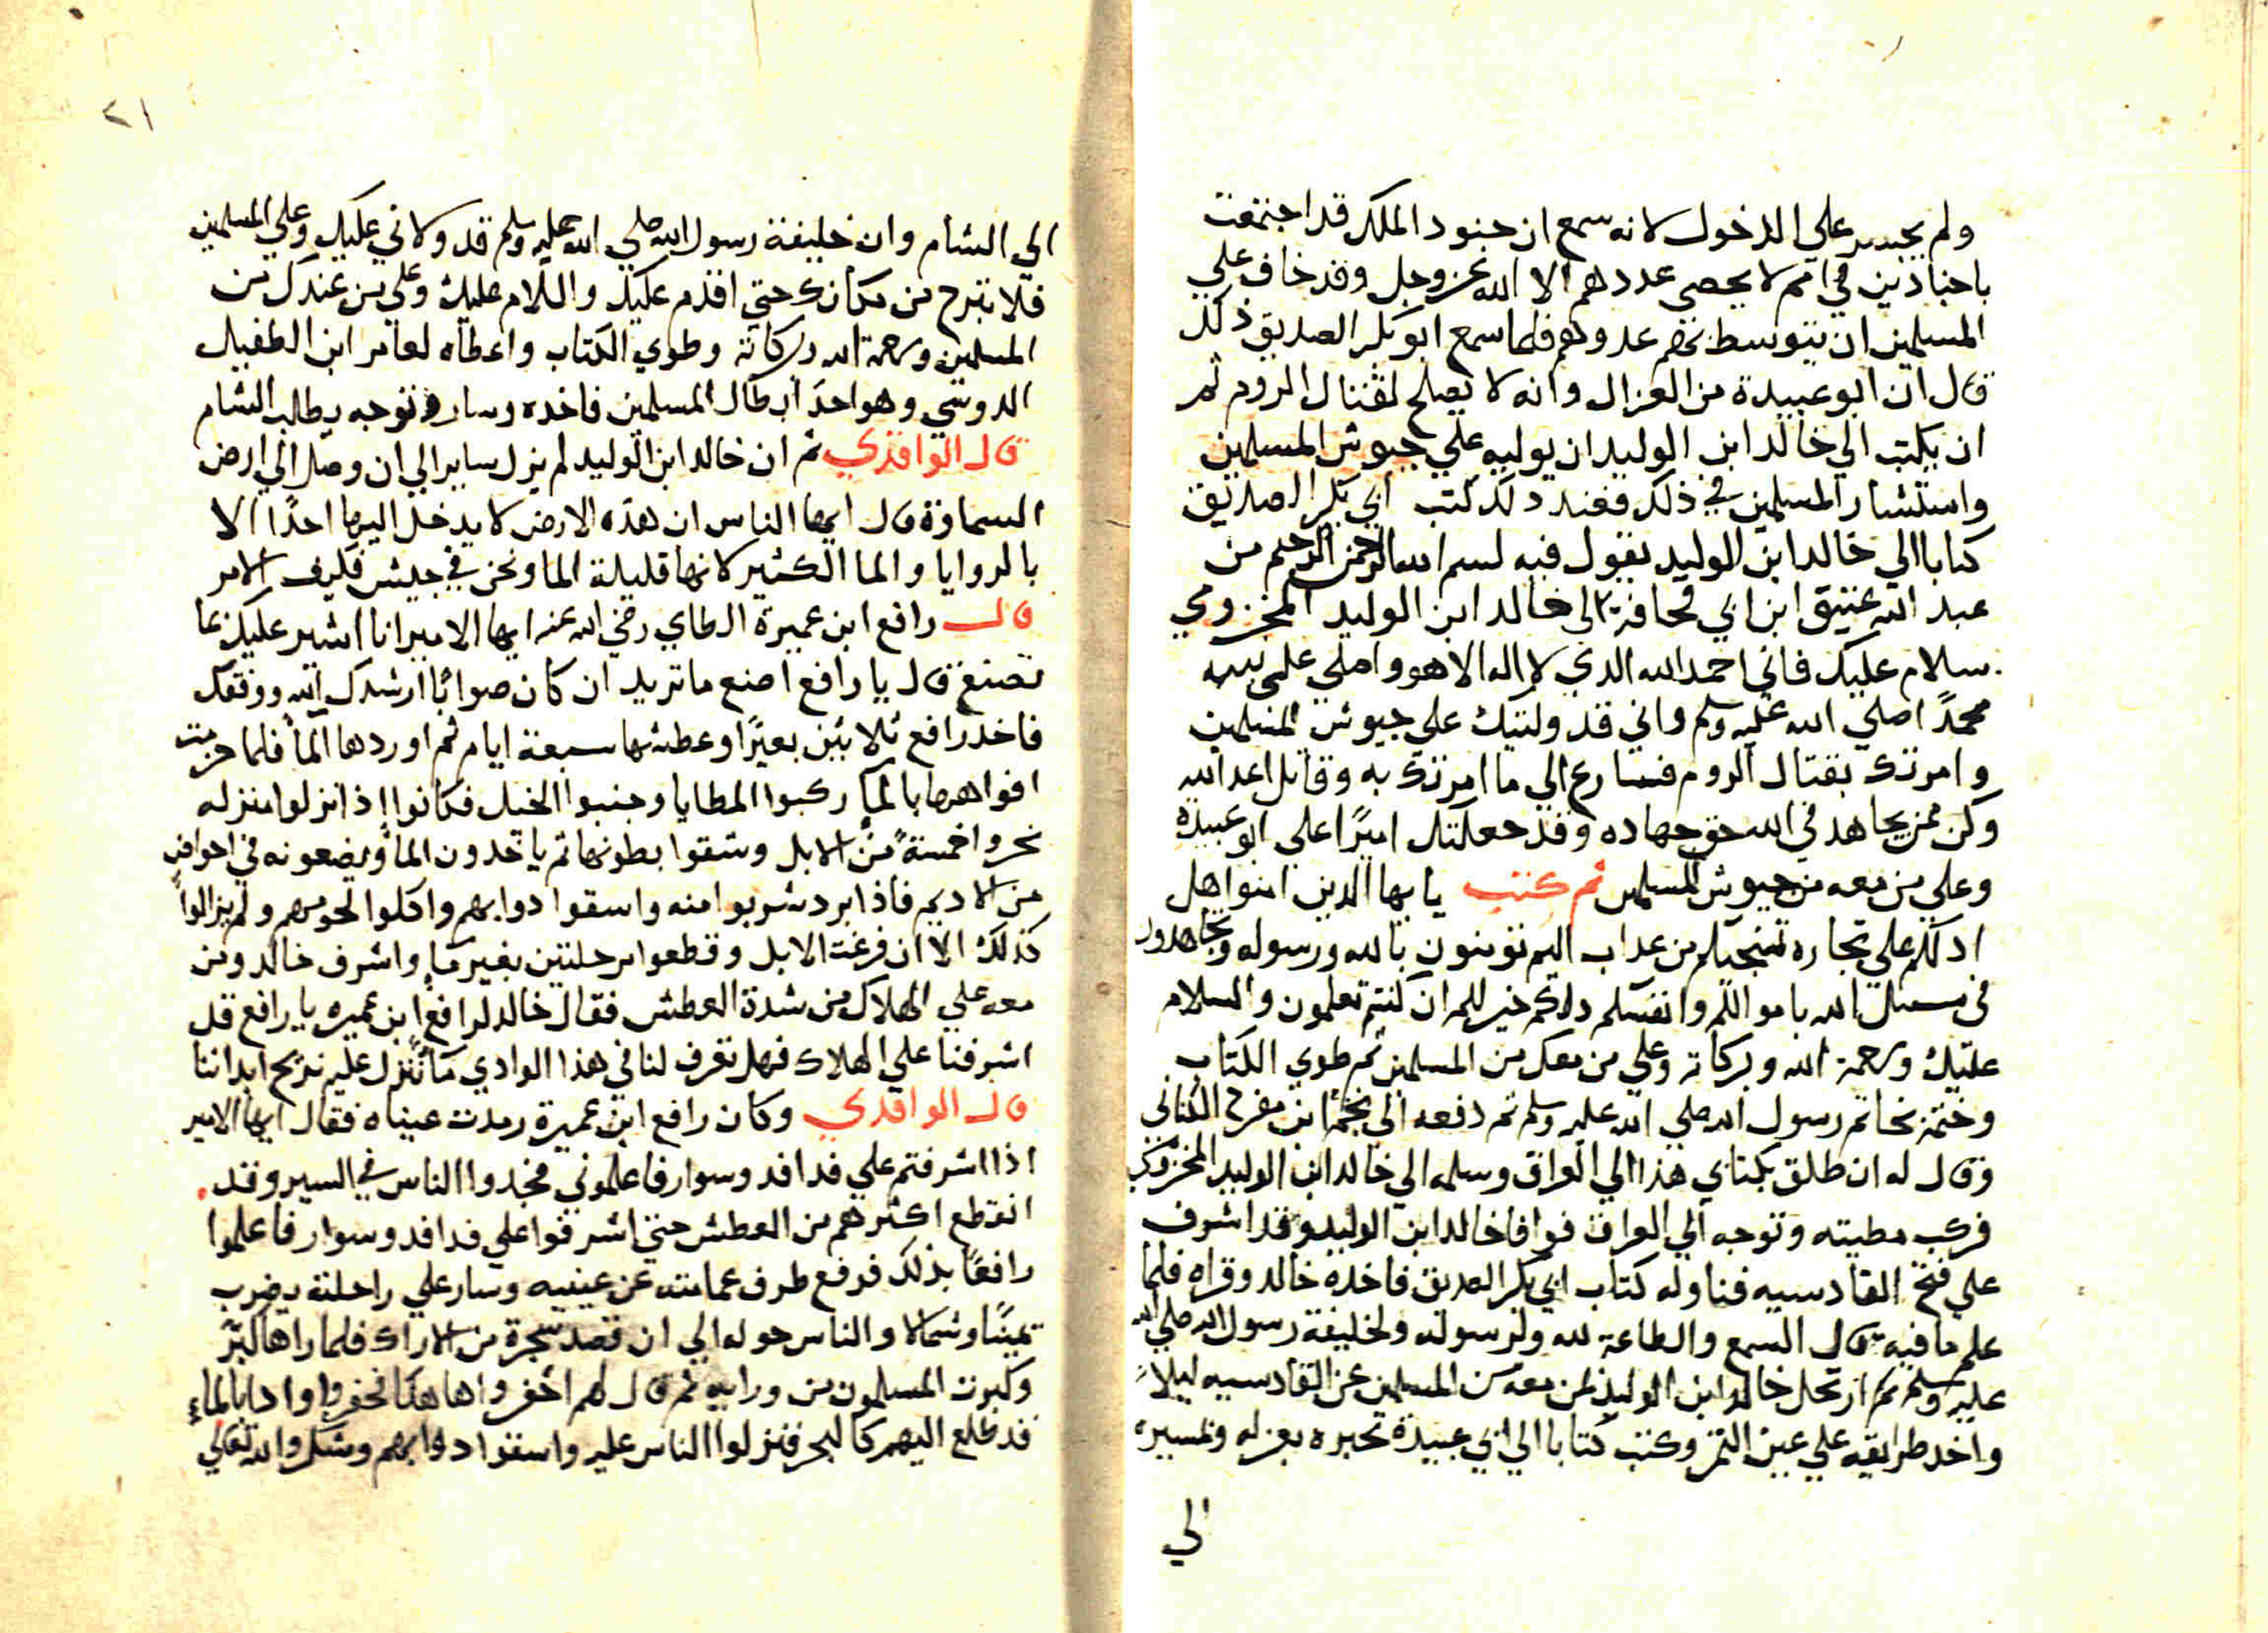 ولم يجسر علي الدخول لانه سمع ان جنود الملك قد اجتمعت
باجنادين في امم لا يحصي عددهم الا الله عز وجل وقد خاف علي
المسلمين ان يتوسط بهم عدوهم فلما سمع ابو بكر الصديق ذلك
قال ان ابو عبيدة من العزال وانه لا يصلح لقتال الروم ثم
ان يكتب الي خالد ابن الوليد ان يوليه علي جيوش المسلمين
واستشار المسلمين في ذلك فعند ذلك كتب ابي بكر الصديق
كتابا الي خالد ابن الوليد يقول فيه بسم الله الرحمن الرحيم من
عبد الله عتيق ابن ابي قحافة الي خالد ابن الوليد المخزومي
سلام عليك فاني احمد الله الذي لا اله الا هو واصلي علي نبيه
محمدًا صلي الله عليه وسلم واني قد وليتك علي جيوش المسلمين
وامرتك بقتال الروم فسارع الي ما امرتك به وقاتل اعد الله
وكن ممن يجاهد في الله حق جهاده وقد جعلتك اميرًا علي ابو عبيدة
وعلي من معه من جيوش المسلمين ثم كتب يا يها الدين امنوا هل
ادلكم علي تجاره تنجيكم من عداب اليم تومنون بالله ورسوله وتجاهدون
في سبيل الله باموالكم وانفسكم دلكم خير لكم ان كنتم تعلمون والسلام
عليك ورحمة الله وبركاته وعلي من معك من المسلمين ثم طوي الكتاب
وختمه بخاتم رسول الله صلي الله عليه وسلم ثم دفعه الي نجم ابن مفرح الكناني
وقال له ان طلق بكتابي هذا الي العراق وسلمه الي خالد ابن الوليد المخزومي
فركب مطيته وتوجه الي العراق فوافا خالد ابن الوليد وقد اشرف
علي فتح القادسيه فناوله كتاب ابي بكر الصديق فاخده خالد وقراه فلما
علم ما فيه قال السمع والطاعة لله ولرسوله ولخليفة رسول الله صلي الله
عليه وسلم ثم ارتحل خالد ابن الوليد بمن معه من المسلمين عن القادسيه ليلاً
واخد طرايقه علي عين التمر وكتب كتابا الي ابي عبيدة تخبره بعزله وبمسيره
الي
٢١
الي الشام وان خليفة رسول الله صلي الله عليه وسلم قد ولاني عليك وعلي المسلمين
فلا تبرح من مكانك حتي اقدم عليك والسلام عليك وعلي من عندك من
المسلمين ورحمة الله وبركاته وطوي الكتاب واعطاه لعامر ابن الطفيل
الدوسي وهو احد ابطال المسلمين فاخده وسار وتوجه يطالب الشام
قال الواقدي ثم ان خالد ابن الوليد لم يزل ساير الي ان وصل الي ارض
السماوة قال ايها الناس ان هذه الارض لا يدخل اليها احدًا الا
بالروايا والما الكثير لانها قليلة الما ونحن في جيش فكيف الامر
قال رافع ابن عميرة الطاي رضي الله عنه ايها الامير انا اشير عليك بما
تصنع قال يا رافع اصنع ما تريد ان كان صوابًا ارشدك الله ووفقك
فاخد رافع ثلاثين بعيرًا وعطشها سبعة ايام ثم اوردها الما فلما حزمت
افواهها بالما ركبوا المطايا وجنبوا الخيل فكانوا اذا نزلوا منزله
نحروا خمسة من الابل وشقوا بطونها ثم ياخدون الما ويضعونه في احواض
من الاديم فاذا برد شربوا منه واسقوا دوابهم واكلوا لحومهم ولم يزالوا
كذلك الا ان فرغت الابل وقطعوا مرحلتين بغير ما واشرف خالد ومن
معه علي الهلاك من شدة العطش فقال خالد لرافع ابن عميره يا رافع قد
اشرفنا علي الهلاك فهل تعرف لنا في هذا الوادي ما ننزل عليه نريح ابداننا
قال الواقدي وكان رافع ابن عميرة رمدت عيناه فقال ايها الامير
اذا اشرفتم علي فدافد وسوار فاعلموني فجدوا الناس في السير وقد
انقطع اكثرهم من العطش حتي اشرفوا علي فدافد وسوار فاعلموا
رافعًا بذلك فرفع طرف عمامته عن عينيه وسار علي راحلته يضرب
يمينًا وشمالا والناس حوله الي ان قصد شجرة من الاراك فلما راها كبّر
وكبرت المسلمون من ورايه ثم قال لهم احفروا ها هنا فحفروا واذا بالماء
قد طلع اليهم كالبحر فنزلوا الناس عليه واسقوا دوابهم وشكروا الله تعالي